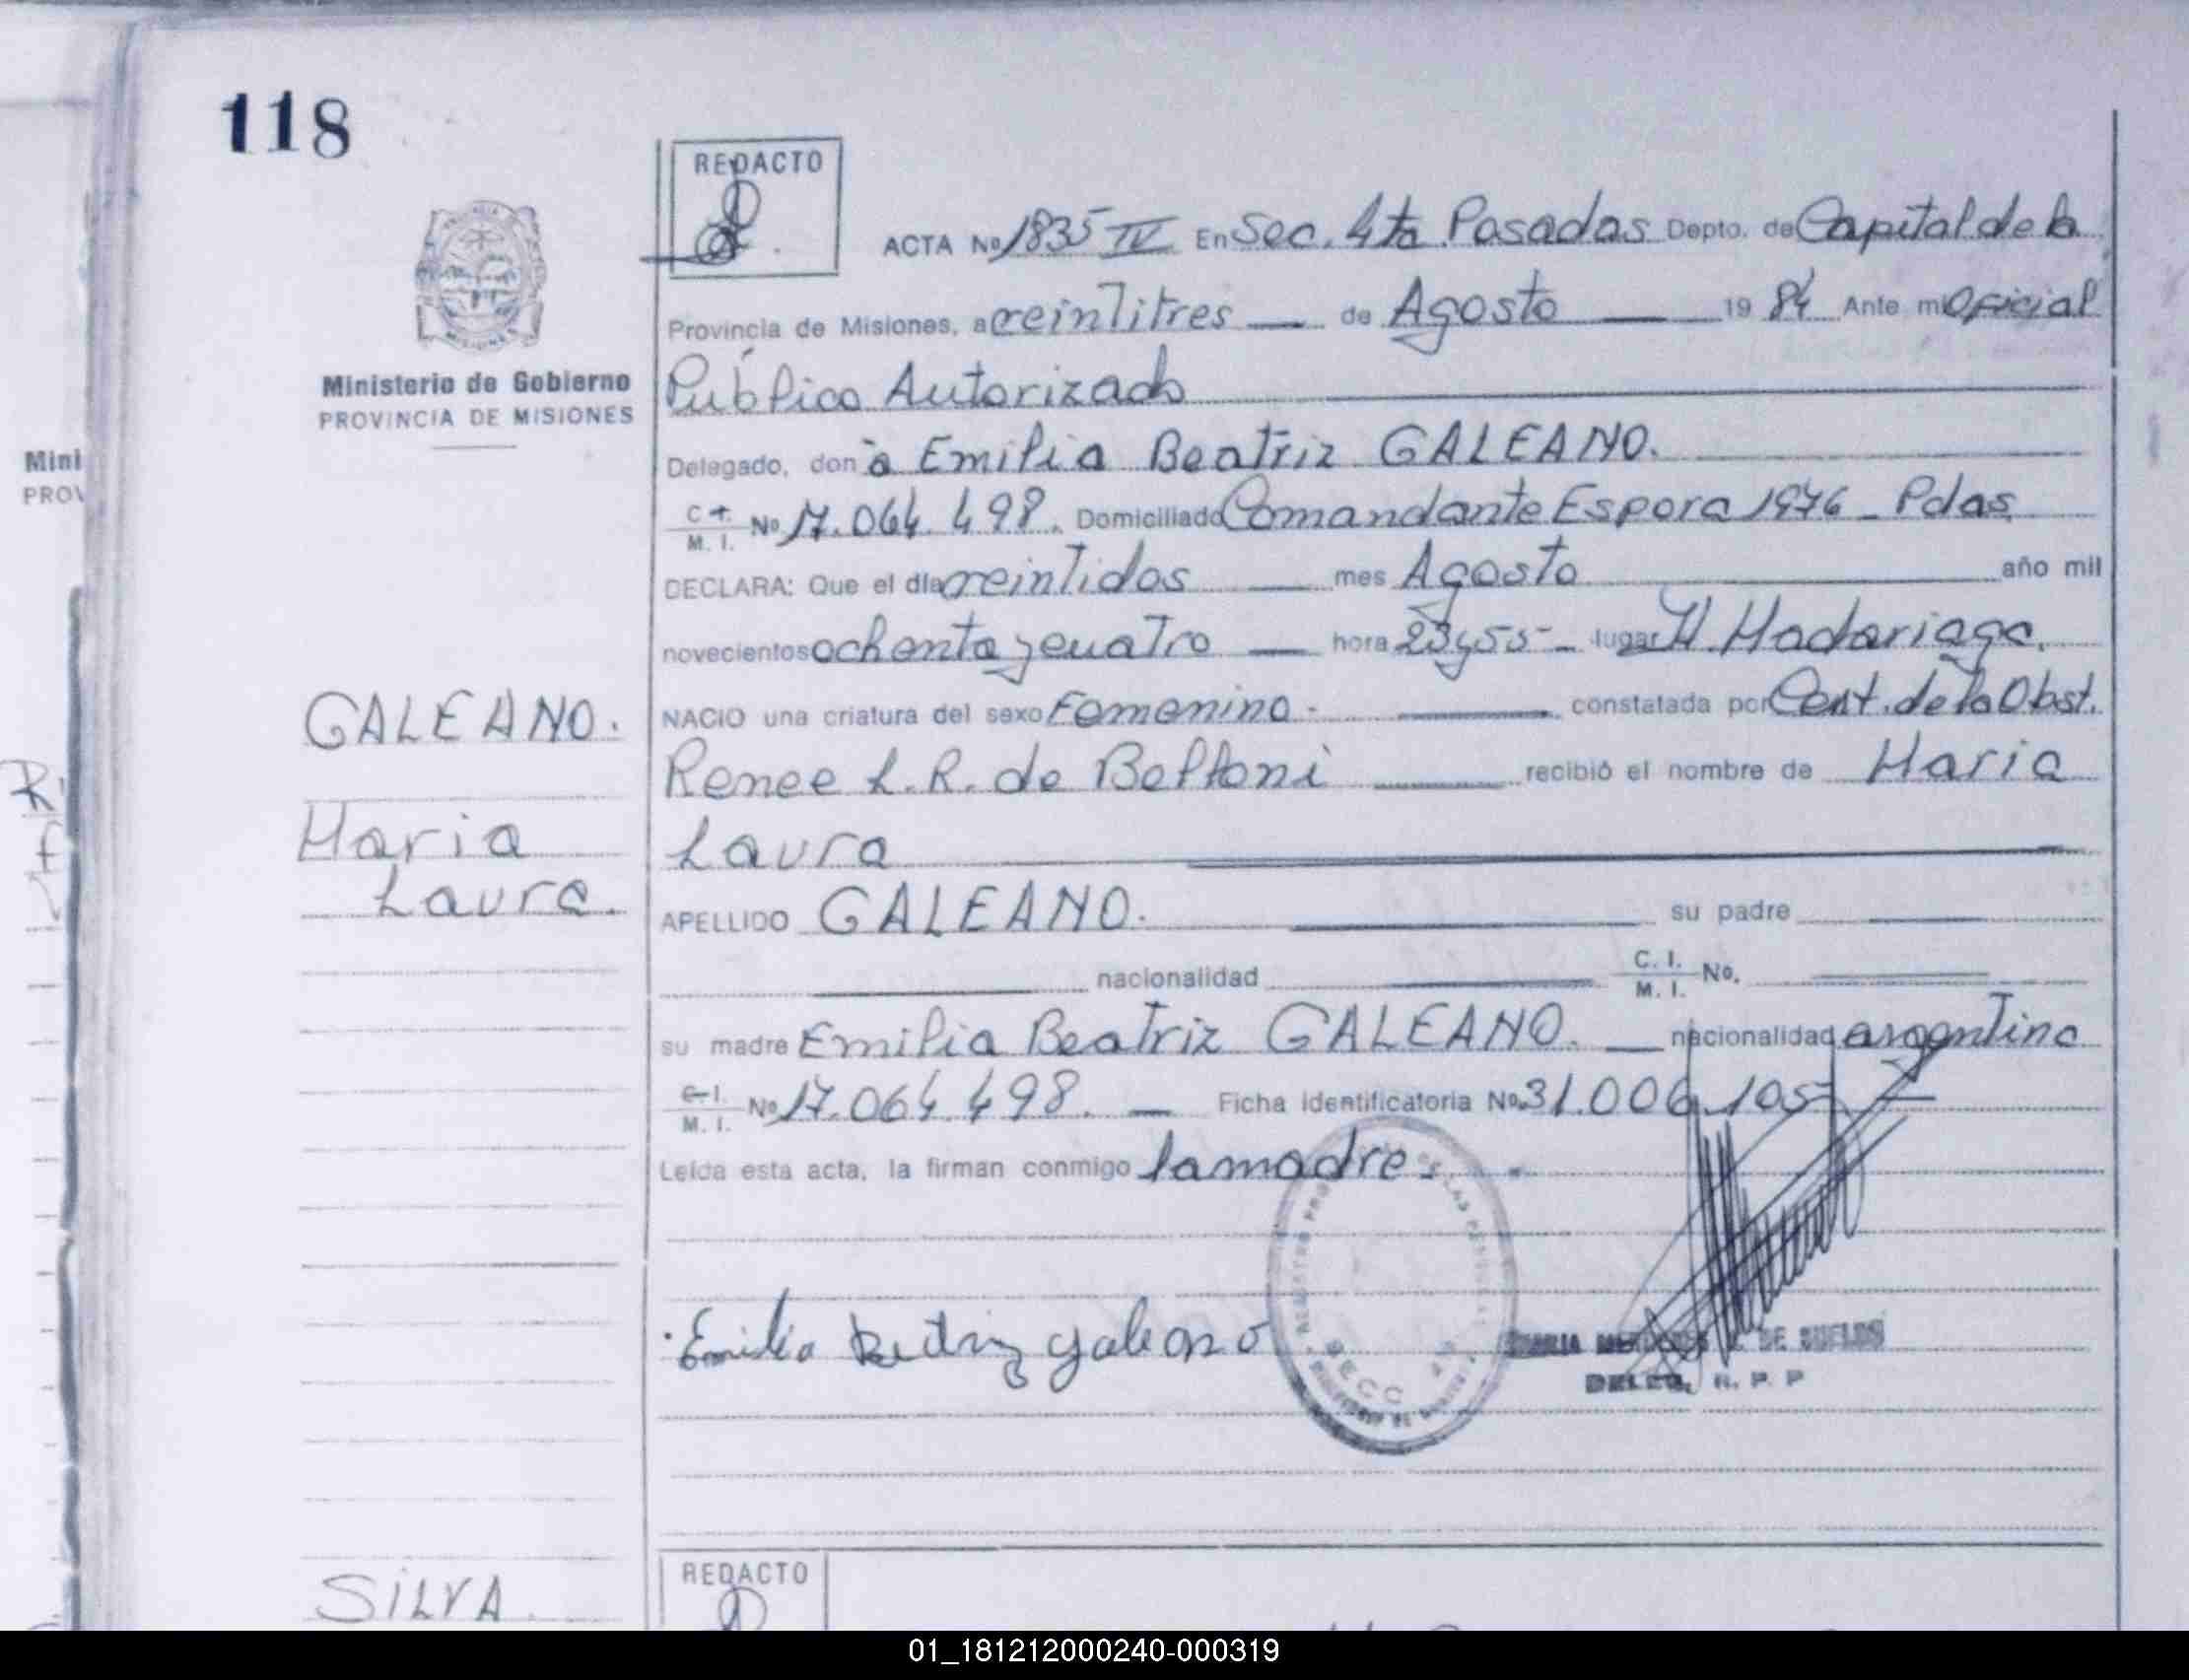 118
REDACTO
ACTA Nº 1835 IV En Sec. 4ta Posadas Depto. de Capital de la
Provincia de Misiones, a veintitres de Agosto 19 84 Ante mi Oficial
Ministerio de Gobierno
PROVINCIA DE MISIONES
Público Autorizado
Delegado, don a Emilia Beatriz GALEANO.
Mini
PROV
C.I. M. I. Nº 17.064.498. Domiciliado Comandante Espora 1976 - Pdas
DECLARA: Que el día veintidos mes Agosto año mil
novecientos ochenta y cuatro hora 23y55- lugar H. Madariaga.
GALEANO.
NACIO una criatura del sexo Femenino - constatada por Cert. de la Obst.
Renee L.R. de Belloni recibió el nombre de Maria
Maria
Laura
Laura.
APELLIDO GALEANO. su padre
nacionalidad C. I. M. I. No.
su madre Emilia Beatriz GALEANO. nacionalidad argentina
C.I. M. I. Nº 17.064.498. Ficha Identificatoria Nº 31.006.105
Leída esta acta, la firman conmigo la madre.
Emilia Beatriz Galeano
DE SUELDS
DELEG. R. P. P
SILVA
REDACTO
01_181212000240-000319